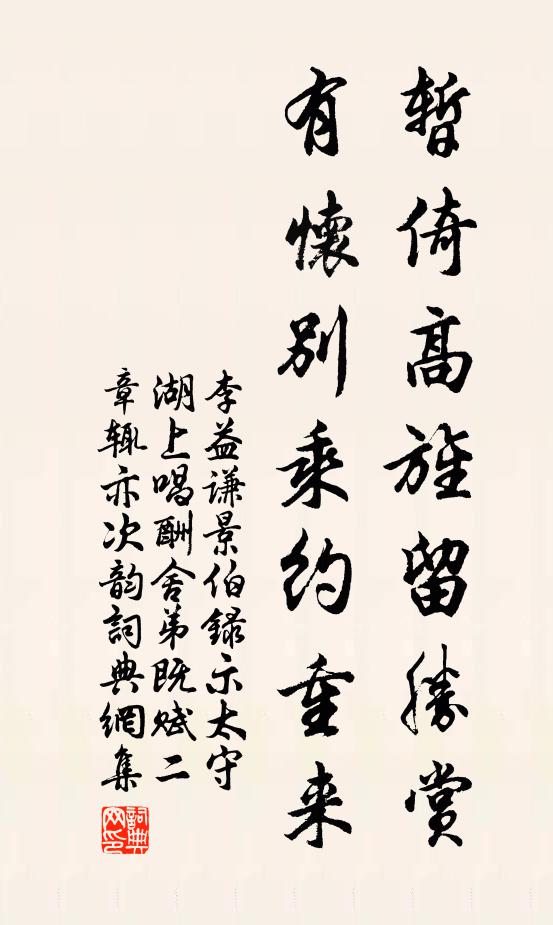 暫倚高旌留勝賞
有懷別乘約重来
李益谦景伯録示太守
湖上唱酬舍弟既赋二
章辄亦次韵詞典網集
詞典网印